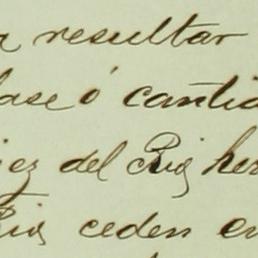 r resultar
lase ó cantid
iez del Rig her
Rig ceden en